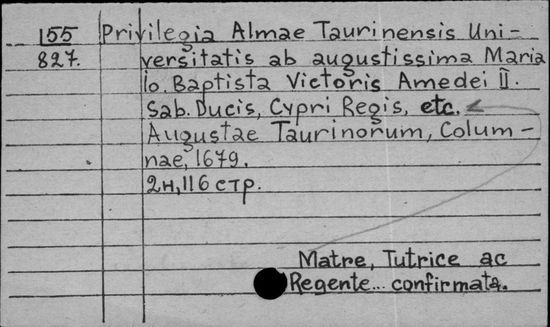 155 Privilegia Almae Taurinensis Uni-
827. versitatis ab augustissima Maria
Io. Baptista Victoris Amedei II.
Sab. Ducis, Cypri Regis, etc.
Augustae Taurinorum, Colum-
nae, 1679.
2н, 116 стр.
Matre, Tutrice ac
Regente... confirmata.